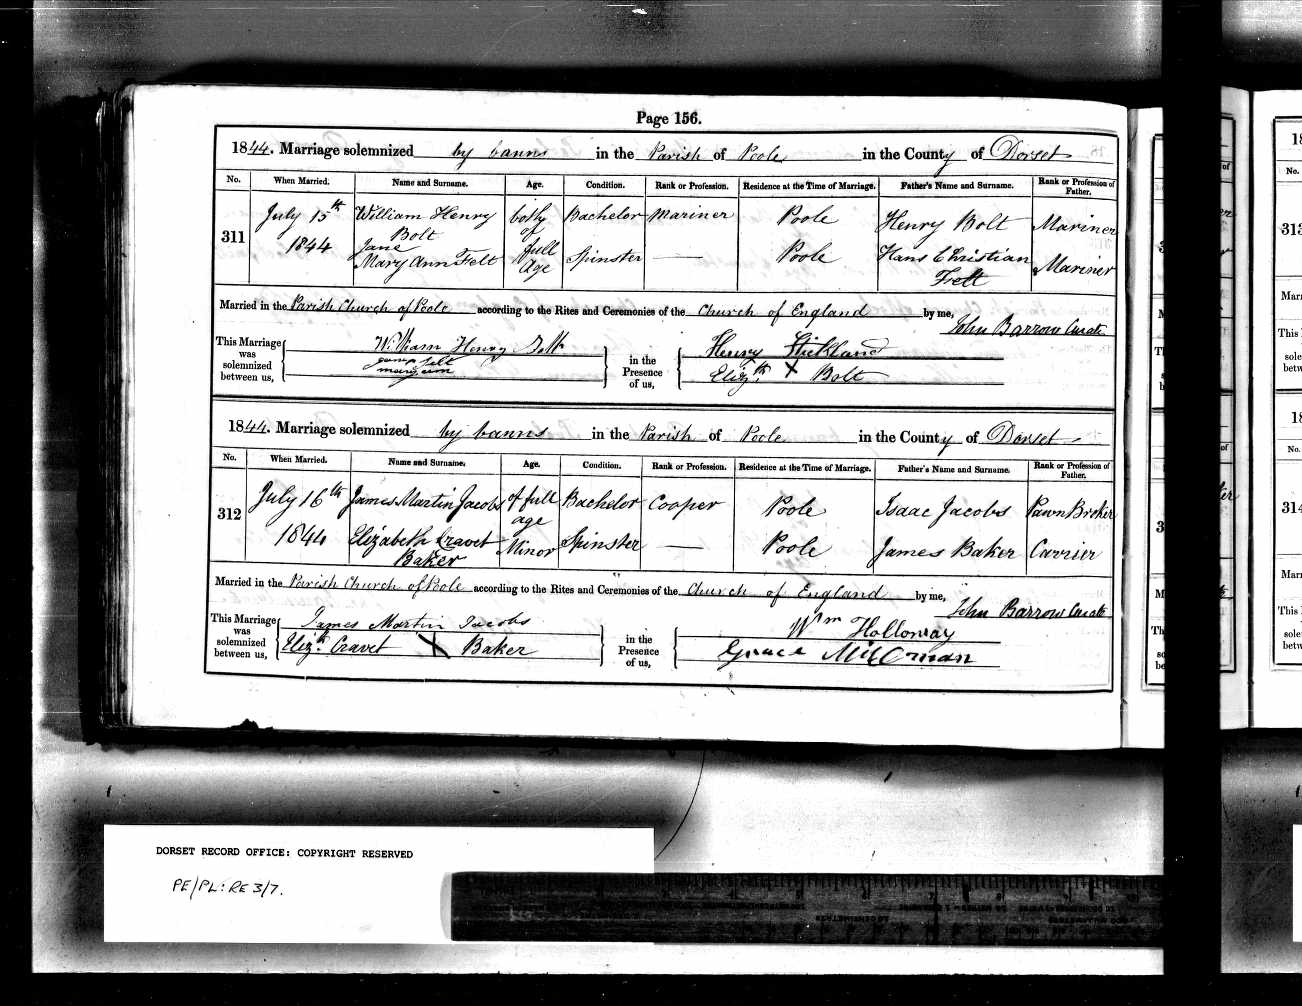 Page 156.
1844. Marriage solemnized by banns in the Parish of Poole in the County of Dorset
No. When Married. Name and Surname. Age. Condition. Rank or Profession. Residence at the Time of Marriage. Father's Name and Surname. Rank or Profession of Father.
311 July 15th 1844 William Henry Bolt both of full Age Bachelor Mariner Poole Henry Bolt Mariner
Jane Mary Ann Felt Spinster — Poole Hans Christian Felt Mariner
Married in the Parish Church of Poole according to the Rites and Ceremonies of the Church of England by me,
John Barrow Curate
This Marriage was solemnized between us,
William Henry Bolt
felt
mary ann
in the Presence of us,
Henry Stickland
Elizth. X Bolt
1844. Marriage solemnized by banns in the Parish of Poole in the County of Dorset
No. When Married. Name and Surname. Age. Condition. Rank or Profession. Residence at the Time of Marriage. Father's Name and Surname. Rank or Profession of Father.
312 July 16th 1844 James Martin Jacobs of full age Bachelor Cooper Poole Isaac Jacobs Pawn Broker
Elizabeth Cravet Baker Minor Spinster — Poole James Baker Carrier
Married in the Parish Church of Poole according to the Rites and Ceremonies of the Church of England by me,
John Barrow Curate
This Marriage was solemnized between us,
James Martin Jacobs
Elizth. Cravet X Baker
in the Presence of us,
Wm Holloway
Grace
DORSET RECORD OFFICE: COPYRIGHT RESERVED
PE/PL: RE 3/7.
313
314